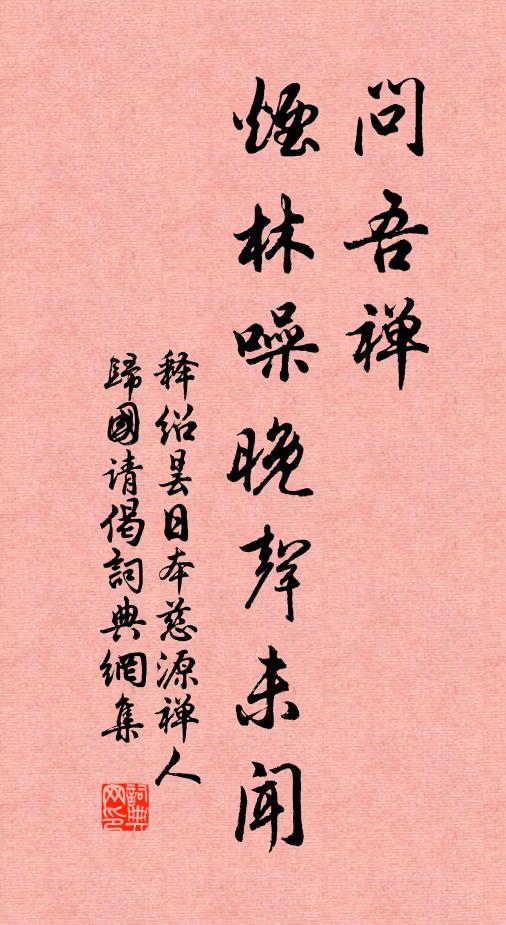 问吾禅
烟林噪晚声未闻
释绍昙日本慈源禅人
归国请偈词典网集
词典网印